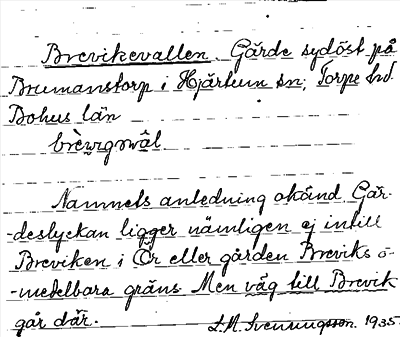 Brevikevallen. Gärde sydöst på
Brumanstorp i Hjärtum sn; Torpe hd
Bohus län
Namnets anledning okänd Gär-
-deslyckan ligger nämligen ej intill
Breviken i Ör eller gården Breviks o-
-medelbara gräns Men väg till Brevik
går där.
L.A. Svenningsson. 1935.